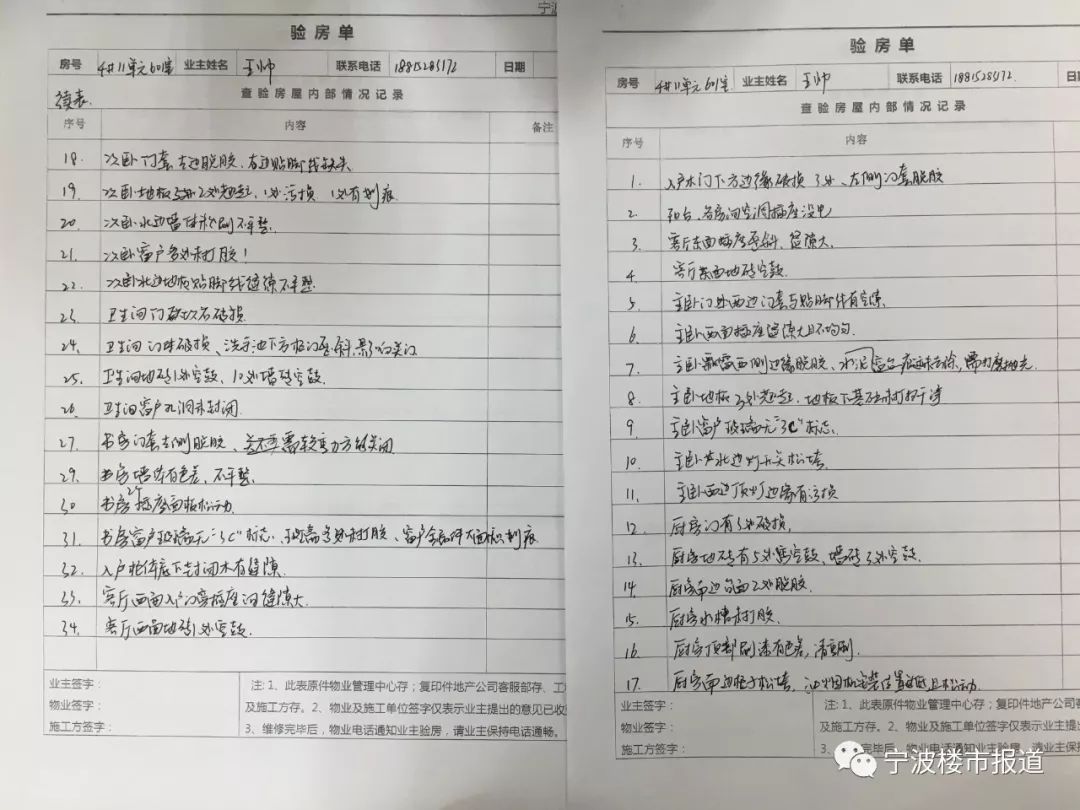 宁波
验房单
房号 4#11单元601室 业主姓名 王帅 联系电话 18815285172 日期
续表.
查验房屋内部情况记录
序号 内容 备注
18. 次卧门套右边脱胶、右边贴脚线缺失
19. 次卧地板5处2处起翘、1处污损 1处有划痕.
20. 次卧北边墙体粉刷不平整.
21. 次卧窗户多处未打胶!
22. 次卧北边地板贴脚线缝隙不平整.
23. 卫生间门破损.
24. 卫生间门体破损、洗手池下方柜门歪斜,影响关门
25. 卫生间地砖1处空鼓、10处墙砖空鼓.
26. 卫生间窗户孔洞未封闭.
27. 书房门套左侧脱胶、需较大力方能关闭
29. 书房墙体有色差、不平整.
30. 书房2个插座面板松动.
31. 书房窗户玻璃无"3C"标志、玻璃多处未打胶、窗户金属件大面积划痕
32. 入户柜体底下封闭木有缝隙.
33. 客厅西面入户门旁插座间缝隙大.
34. 客厅西面地砖1处空鼓.
业主签字:
物业签字:
施工方签字:
注:1、此表原件物业管理中心存;复印件地产公司客服部存、工
及施工方存。2、物业及施工单位签字仅表示业主提出的意见已收
3、维修完毕后,物业电话通知业主验房,请业主保持电话通畅。
验房单
房号 4#11单元601室 业主姓名 王帅 联系电话 18815285172. 日
查验房屋内部情况记录
序号 内容
1. 入户木门下方边缘破损3处、左侧门套脱胶
2. 阳台、各房间空调插座没电
3. 客厅东面插座歪斜、缝隙大.
4. 客厅东面地砖空鼓.
5. 主卧门外西边门套与贴脚线有空隙.
6. 主卧西面插座缝隙大且不均匀.
7. 主卧飘窗西侧边缘脱胶、水泥窗台底面未清除,需打磨抛光
8. 主卧地板3处起翘、地板下基础未打扫干净
9. 主卧窗户玻璃无"3C"标志.
10. 主卧北边灯开关松垮.
11. 主卧西边顶灯边有污损
12. 厨房门有3处破损.
13. 厨房地砖有5处空鼓、墙砖3处空鼓.
14. 厨房南边台面2处脱胶.
15. 厨房水槽未打胶.
16. 厨房顶部刷漆有色差,请重刷.
17. 厨房南边柜子松垮、油烟机安装位置过低且松动.
业主签字:
物业签字:
施工方签字:
注:1、此表原件物业管理中心存;复印件地产公
及施工方存。2、物业及施工单位签字仅表示业主
3、 完毕后,物业电话通知业主验房,请业主保
宁波楼市报道